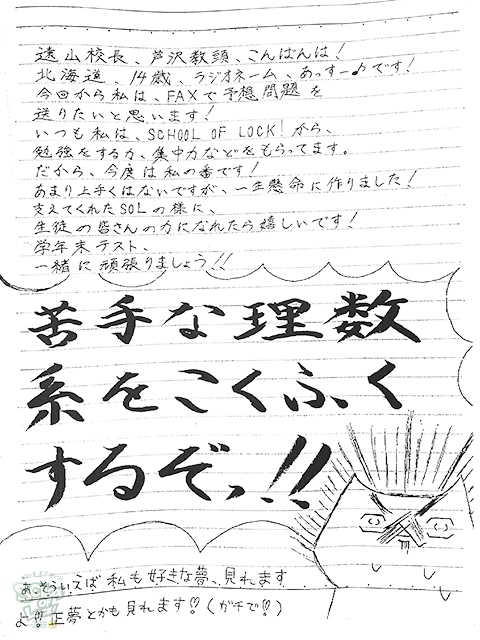 遠山校長、芦沢教頭、こんばんは!
北海道、14歳、ラジオネーム、あっすー♪です!
今回から私は、FAXで予想問題を
送りたいと思います!
いつも私は、SCHOOL OF LOCK!から、
勉強をする力、集中力などをもらってます。
だから、今度は私の番です!
あまり上手くはないですが、一生懸命に作りました!
支えてくれたSOLの様に、
生徒の皆さんの力になれたら嬉しいです!
学年末テスト、
一緒に頑張りましょう!!
苦手な理数
系をこくふく
するぞっ!!
あ、そういえば私も好きな夢、見れます
よ!!正夢とかも見れます!♡(ガチで♡)